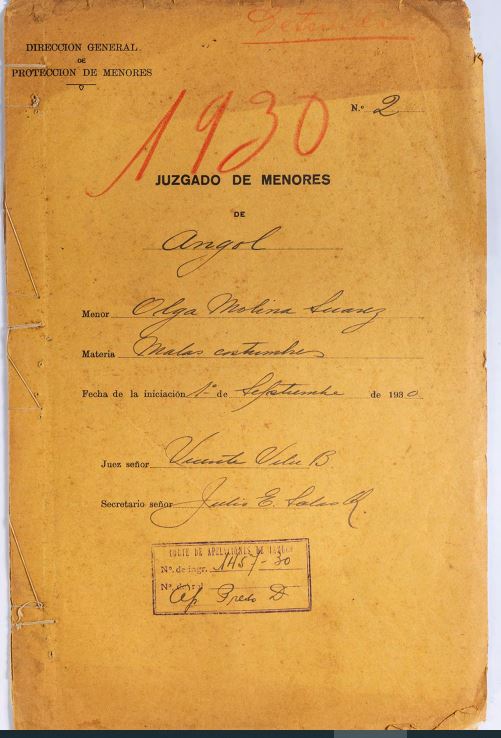 DIRECCION GENERAL
DE
PROTECCION DE MENORES
N.º 2
1930
JUZGADO DE MENORES
DE
Angol
Menor Olga Molina Suarez
Materia Malas costumbres
Fecha de la iniciación 1º de Septiembre de 1930.
Juez señor Vicente B.
Secretario señor Julio E. Salas R.
CORTE DE APELACIONES DE
Nº. de ingr. 1457-30
Nº. de rol